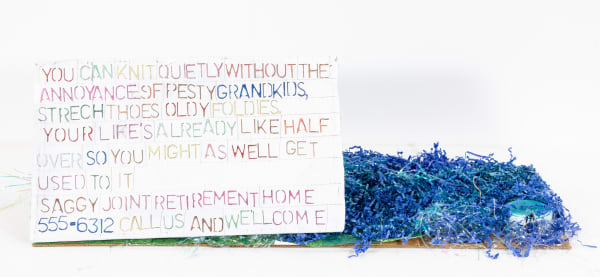 YOU CAN KNIT QUIETLY WITHOUT THE
ANNOYANCE OF PESTY GRANDKIDS,
STRECH THOES OLDY FOLDIES,
YOUR LIFE'S ALREADY LIKE HALF
OVER SO YOU MIGHT AS WELL GET
USED TO IT
SAGGY JOINT RETIREMENT HOME
555-6312 CALL US AND WELL COME